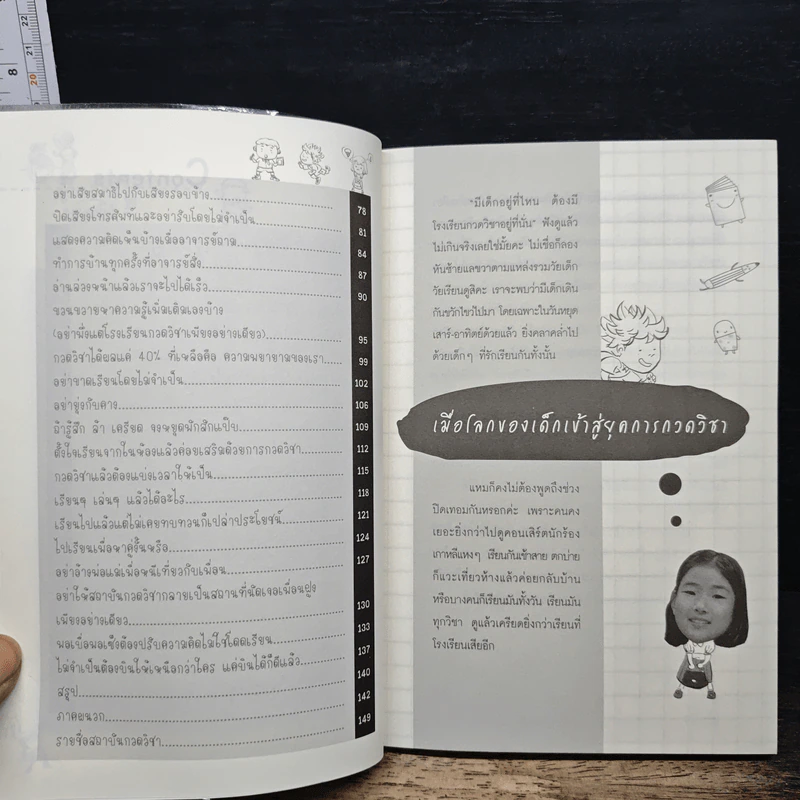 8
20
21
22
Contents
อย่าเสียสมาธิไปกับเสียงรอบข้าง
78
ปิดเสียงโทรศัพท์และอย่ารับโดยไม่จำเป็น
81
แสดงความคิดเห็นบ้างเมื่ออาจารย์ถาม
84
ทำการบ้านทุกครั้งที่อาจารย์สั่ง
87
อ่านล่วงหน้าแล้วเราจะไปได้เร็ว
90
ขวนขวายหาความรู้เพิ่มเติมเองบ้าง
(อย่าพึ่งแต่โรงเรียนกวดวิชาเพียงอย่างเดียว)
95
กวดวิชาได้ผลแค่ 40% ที่เหลือคือ ความพยายามของเรา
99
อย่าขาดเรียนโดยไม่จำเป็น
102
อย่ายุ่งกับคาง
106
ถ้ารู้สึก ล้า เครียด จงหยุดพักสักแป๊บ
109
ตั้งใจเรียนจากในห้องแล้วค่อยเสริมด้วยการกวดวิชา
112
กวดวิชาแล้วต้องแบ่งเวลาให้เป็น
115
เรียนๆ เล่นๆ แล้วได้อะไร
118
เรียนไปแล้วแต่ไม่เคยทบทวนก็เปล่าประโยชน์
121
ไปเรียนเพื่อหาคู่งั้นหรือ
124
อย่าอ้างพ่อแม่เพื่อหนีเที่ยวกับเพื่อน
127
อย่าให้สถาบันกวดวิชากลายเป็นสถานที่นัดเจอเพื่อนฝูง
เพียงอย่างเดียว
130
พอเบื่อพอเซ็งต้องปรับความคิดไม่ใช่โดดเรียน
133
ไม่จำเป็นต้องบินให้เหนือกว่าใคร แค่บินได้ก็ดีแล้ว
137
สรุป
140
ภาคผนวก
142
รายชื่อสถาบันกวดวิชา
149
"มีเด็กอยู่ที่ไหน ต้องมี
โรงเรียนกวดวิชาอยู่ที่นั่น" ฟังดูแล้ว
ไม่เกินจริงเลยใช่มั้ยคะ ไม่เชื่อก็ลอง
หันซ้ายแลขวาตามแหล่งรวมวัยเด็ก
วัยเรียนดูสิคะ เราจะพบว่ามีเด็กเดิน
กันขวักไขว่ไปมา โดยเฉพาะในวันหยุด
เสาร์-อาทิตย์ด้วยแล้ว ยิ่งคลาคล่ำไป
ด้วยเด็กๆ ที่รักเรียนกันทั้งนั้น
เมื่อโลกของเด็กเข้าสู่ยุคการกวดวิชา
แหมก็คงไม่ต้องพูดถึงช่วง
ปิดเทอมกันหรอกค่ะ เพราะคนคง
เยอะยิ่งกว่าไปดูคอนเสิร์ตนักร้อง
เกาหลีแหงๆ เรียนกันเช้าสาย ตกบ่าย
ก็แวะเที่ยวห้างแล้วค่อยกลับบ้าน
หรือบางคนก็เรียนมันทั้งวัน เรียนมัน
ทุกวิชา ดูแล้วเครียดยิ่งกว่าเรียนที่
โรงเรียนเสียอีก